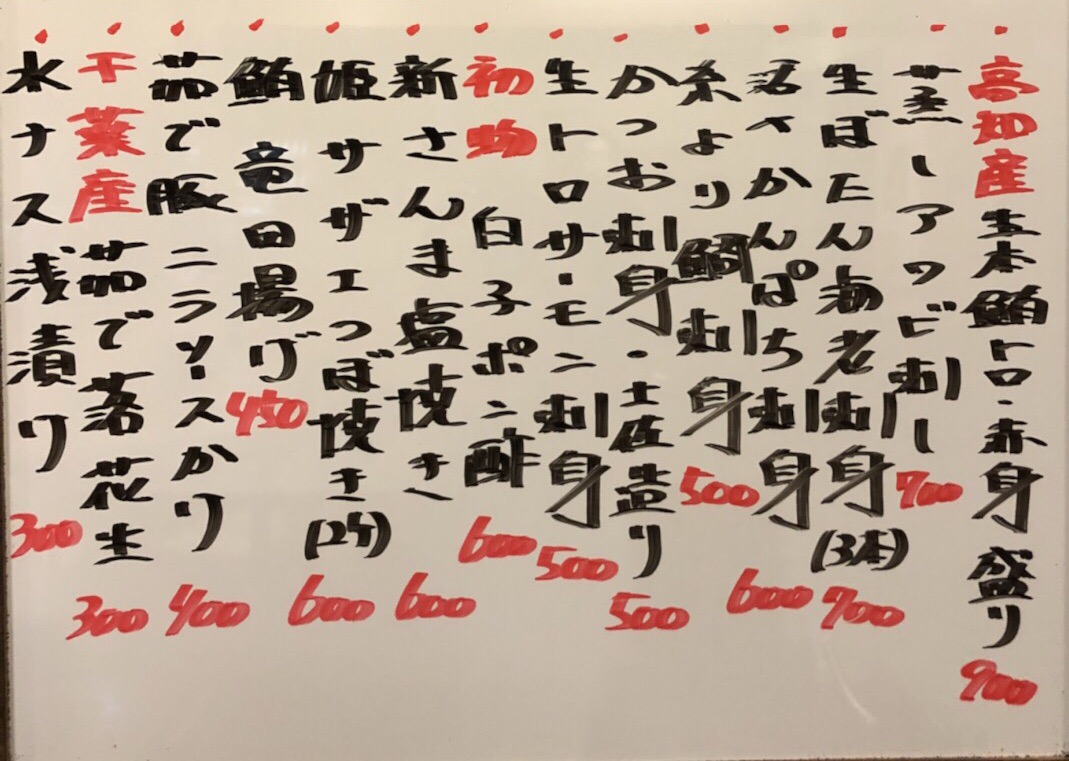 高知産 生本鮪トロ・赤身盛り 900
蒸しアワビ刺し 700
生ぼたん海老刺身(3本) 700
活〆かんぱち刺身 600
糸より鯛刺身 500
かつお刺身・土佐造り 500
生トロサーモン刺身 500
初物 白子ポン酢 600
新さんま塩焼き 600
姫サザエつぼ焼き(2ケ) 600
鮪竜田揚げ 450
茹で豚ニラソースかけ 400
千葉産 茹で落花生 300
水ナス浅漬け 300